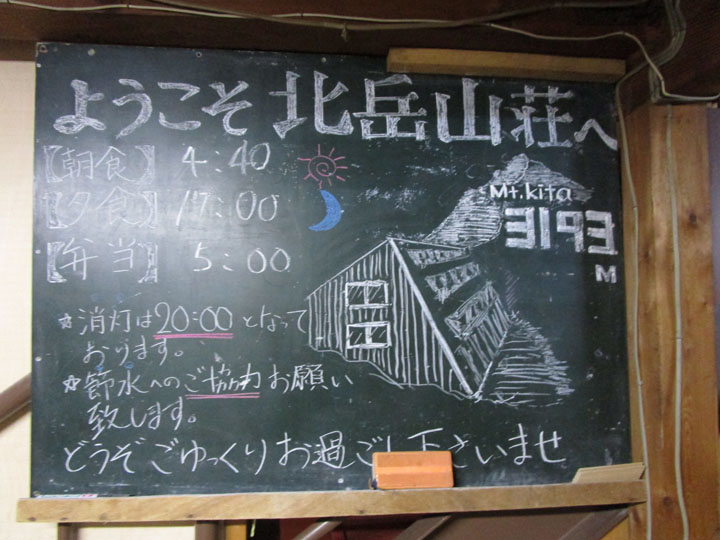 ようこそ 北岳山荘へ
【朝食】 4:40
【夕食】 17:00
【弁当】 5:00
Mt.kita
3193
M
☆消灯は20:00となって
おります。
☆節水へのご協力お願い
致します。
どうぞごゆっくりお過ごし下さいませ